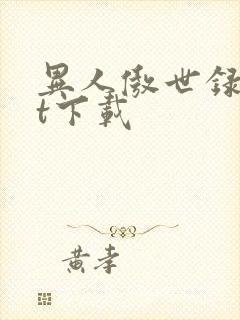 異人傲世録
t下載
黄孝